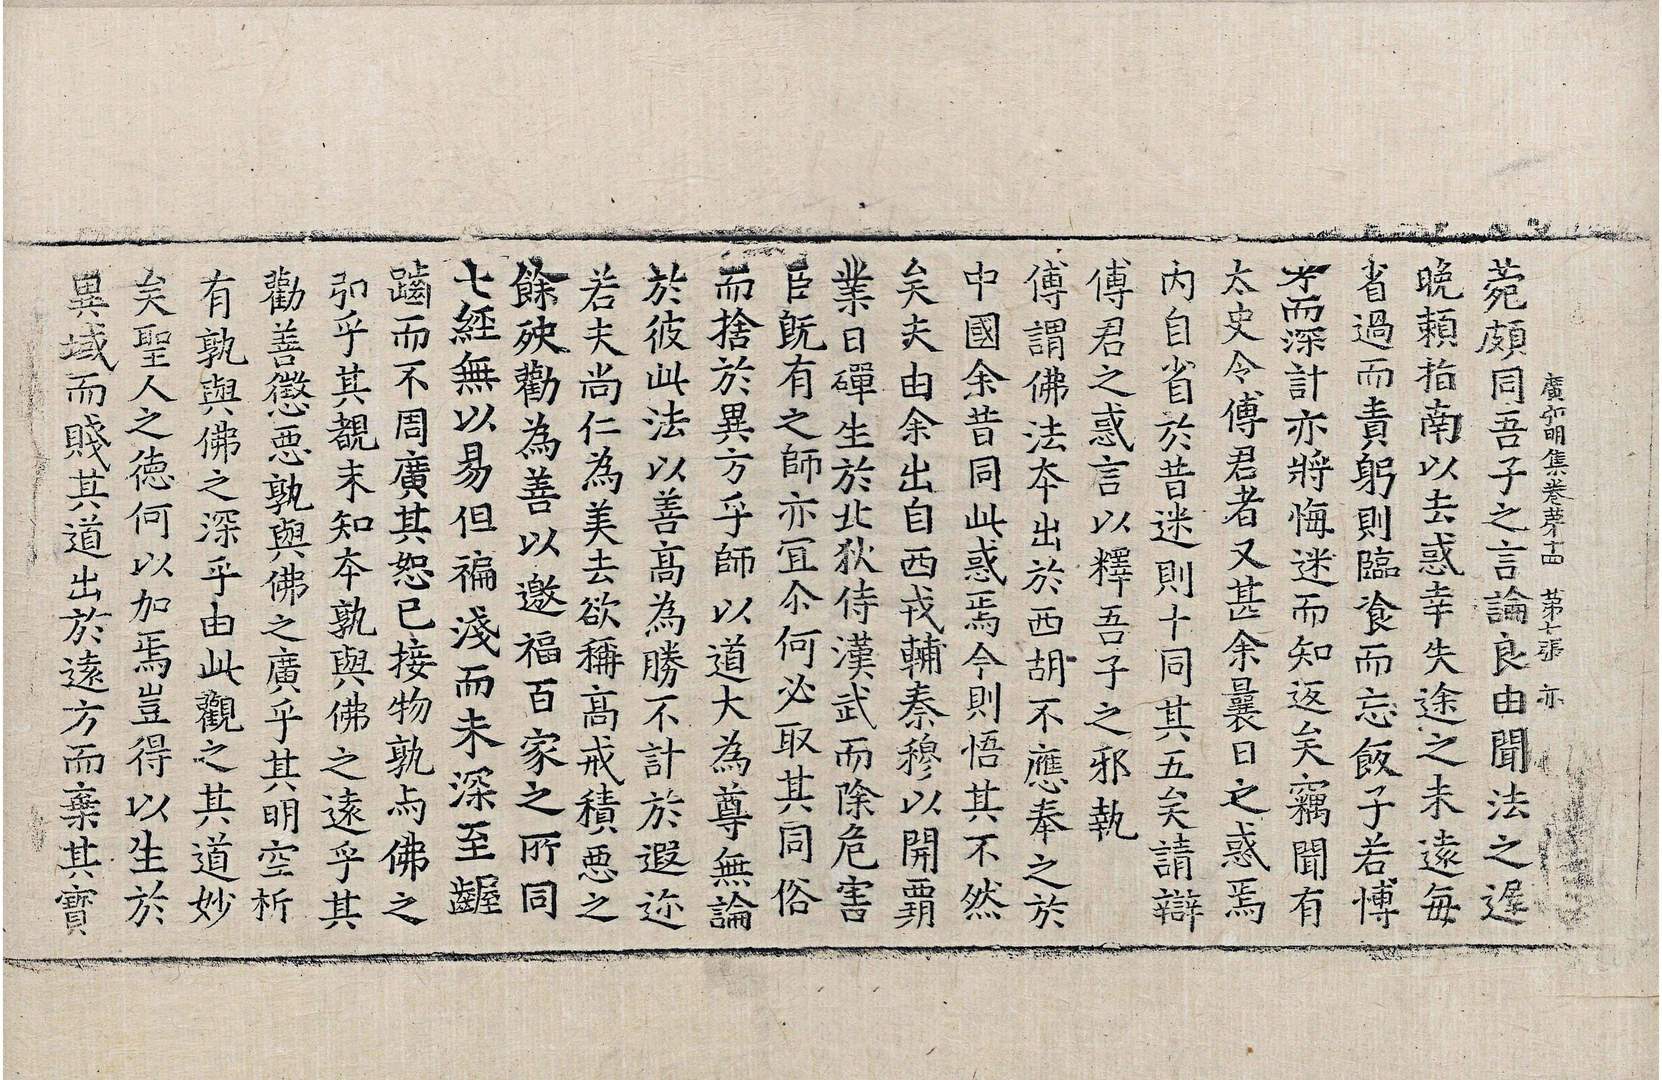 廣弘明集卷苐十四　第七張　亦
菀頗同吾子之言論良由聞法之遅
晚頼指南以去惑幸失途之未遠每
省過而責躬則臨飡而忘飯子若博
才而深計亦將悔迷而知返矣竊聞有
太史令傅君者又甚余曩日之惑焉
內自省於昔迷則十同其五矣請辯
傅君之惑言以釋吾子之邪執
傅謂佛法夲出於西胡不應奉之於
中國余昔同此惑焉今則悟其不然
矣夫由余出自西戎輔秦穆以開覇
業日磾生於北狄侍漢武而除危害
臣旣有之師亦冝尒何必取其同俗
而捨於異方乎師以道大為尊無論
於彼此法以善髙為勝不計於遐迩
若夫尚仁為美去欲稱髙戒積惡之
餘殃勸為善以邀福百家之所同
七經無以易但褊淺而未深至齷
齪而不周廣其恕己接物孰与佛之
弘乎其覩末知夲孰與佛之逺乎其
勸善懲惡孰與佛之廣乎其明空析
有孰與佛之深乎由此觀之其道妙
矣聖人之德何以加焉豈得以生於
異域而賤其道出於遠方而棄其寶